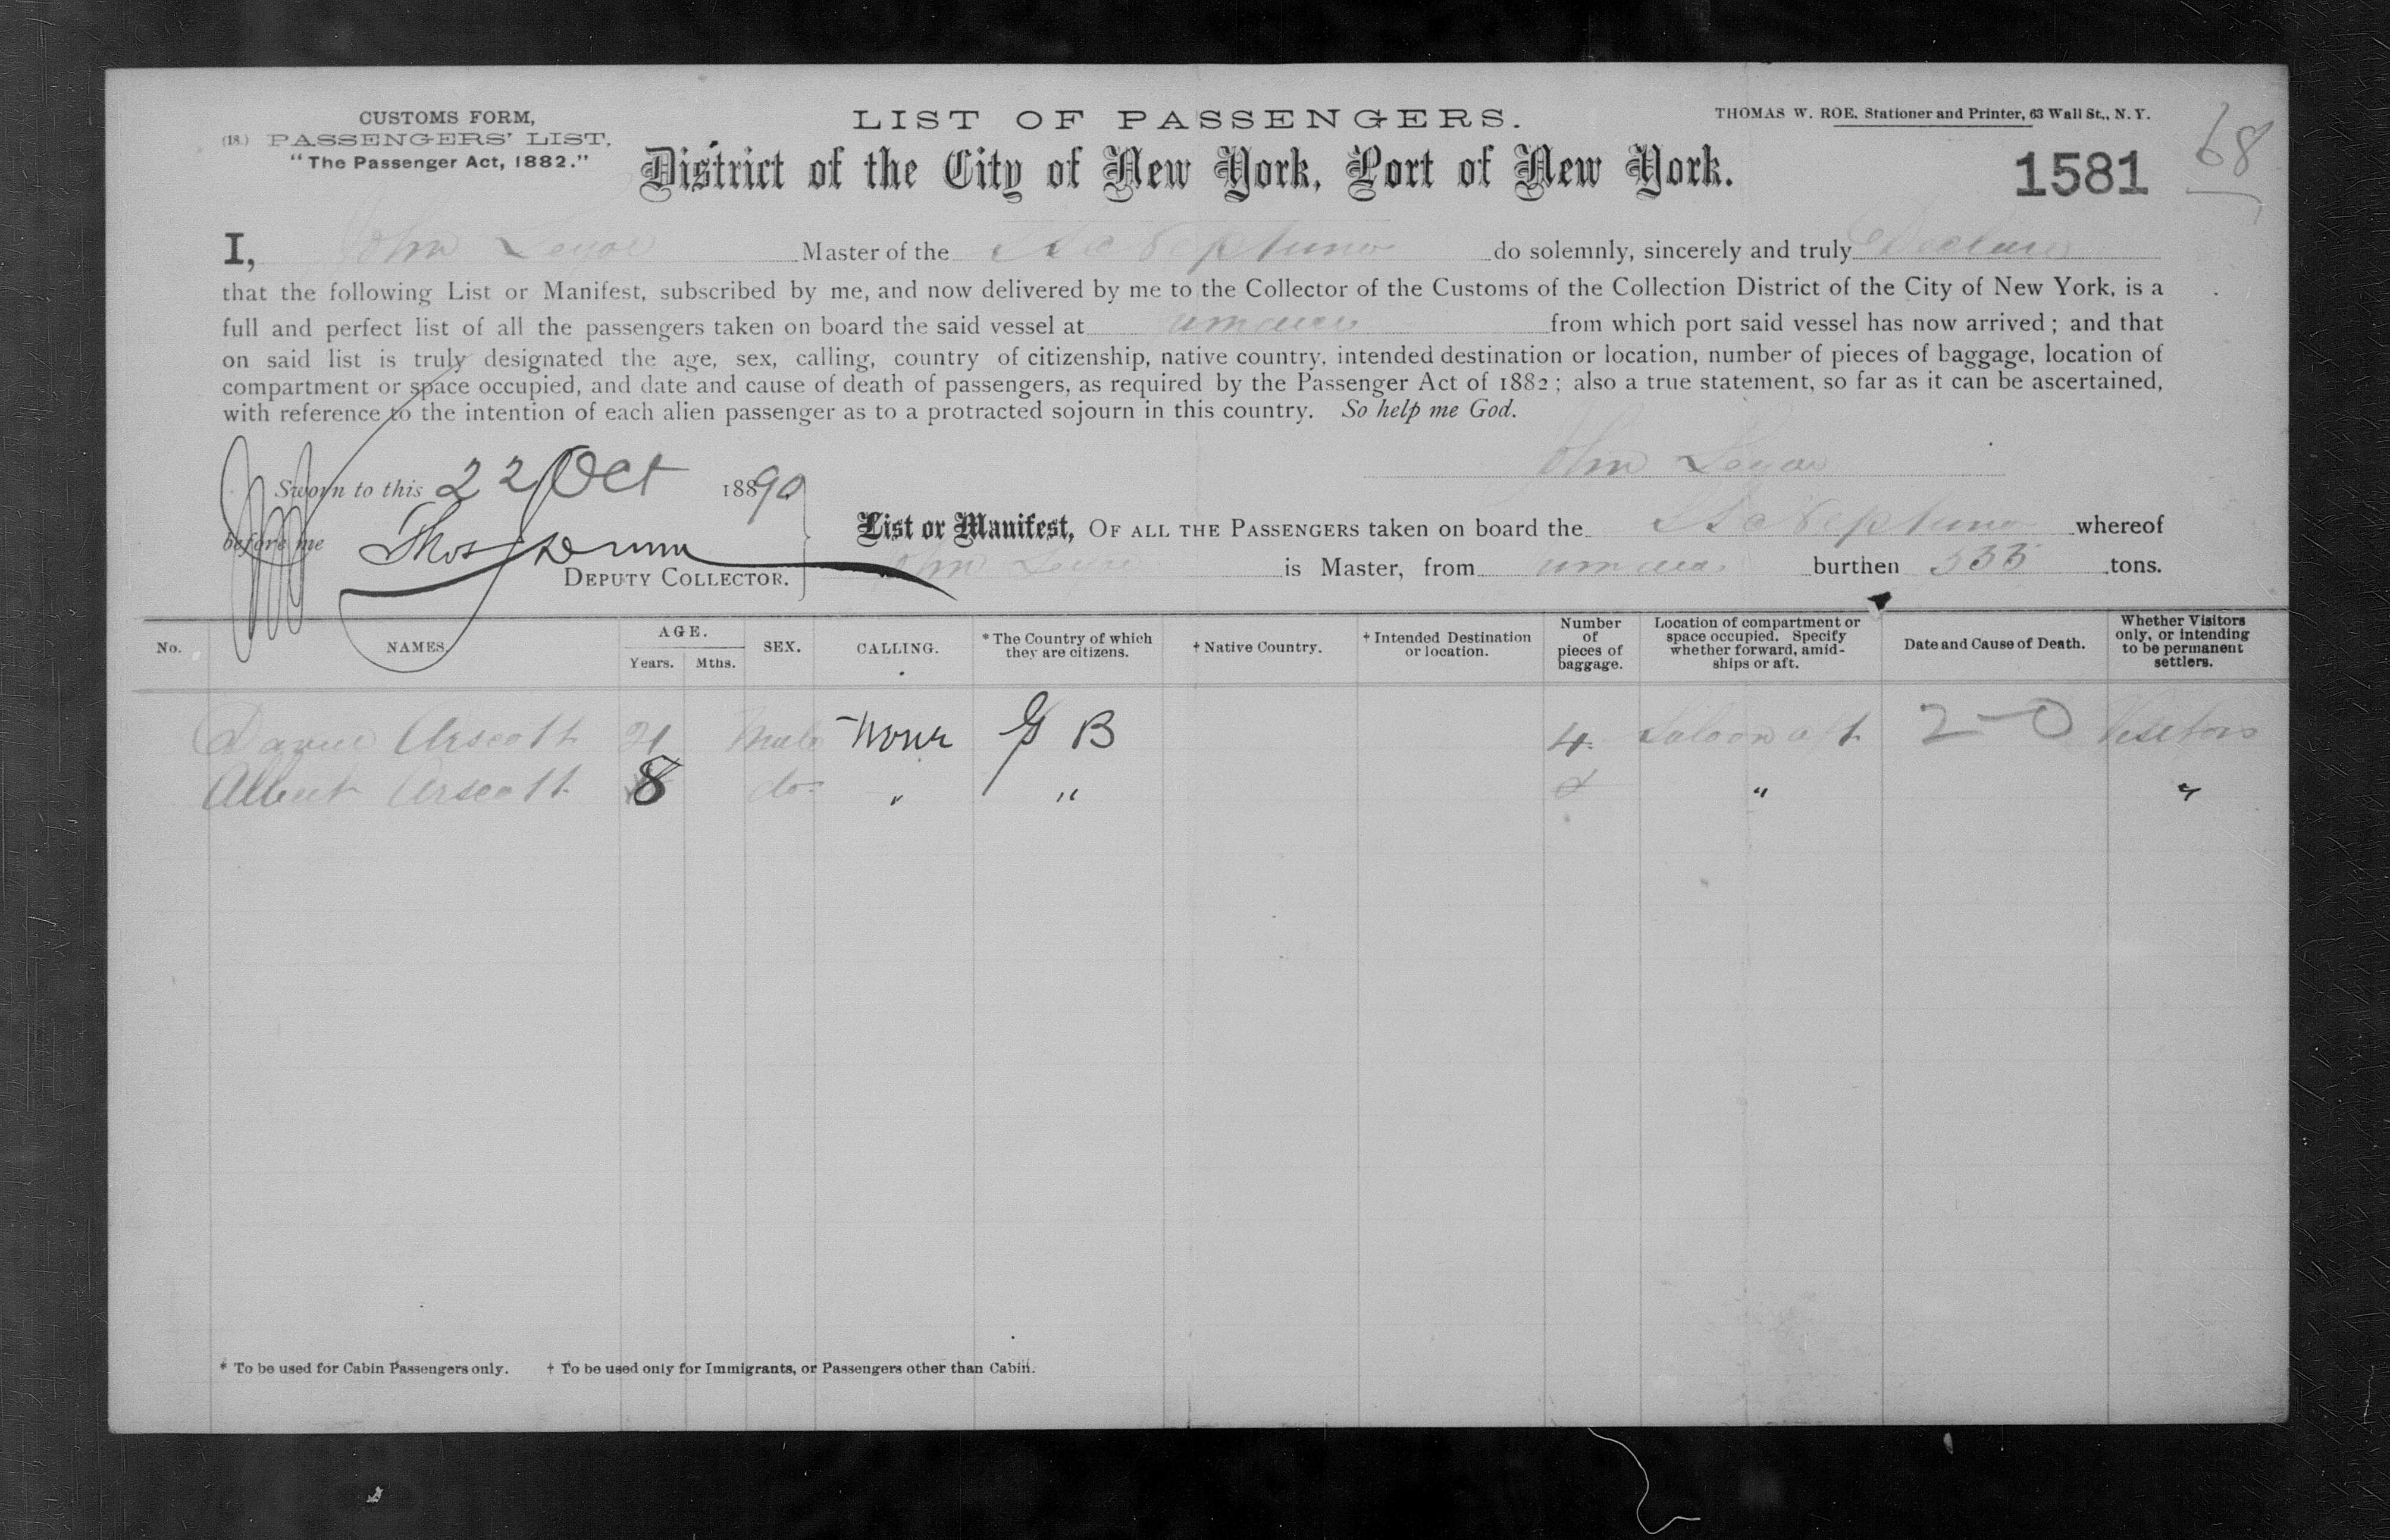 CUSTOMS FORM,
(18.) PASSENGERS' LIST,
"The Passenger Act, 1882."
LIST OF PASSENGERS.
District of the City of New York, Port of New York.
THOMAS W. ROE, Stationer and Printer, 63 Wall St., N. Y.
1581
68
I, John Master of the Neptuno do solemnly, sincerely and truly Declare
that the following List or Manifest, subscribed by me, and now delivered by me to the Collector of the Customs of the Collection District of the City of New York, is a
full and perfect list of all the passengers taken on board the said vessel at from which port said vessel has now arrived; and that
on said list is truly designated the age, sex, calling, country of citizenship, native country, intended destination or location, number of pieces of baggage, location of
compartment or space occupied, and date and cause of death of passengers, as required by the Passenger Act of 1882; also a true statement, so far as it can be ascertained,
with reference to the intention of each alien passenger as to a protracted sojourn in this country. So help me God.
John
Sworn to this 22 Oct 1890
before me Thos
DEPUTY COLLECTOR.
List or Manifest, OF ALL THE PASSENGERS taken on board the Neptuno whereof
John is Master, from burthen tons.
No. NAMES. AGE. Years. Mths. SEX. CALLING. * The Country of which they are citizens. † Native Country. † Intended Destination or location. Number of pieces of baggage. Location of compartment or space occupied. Specify whether forward, amid-ships or aft. Date and Cause of Death. Whether Visitors only, or intending to be permanent settlers.
Arscott 21 Male None G B 4 Saloon aft 2-0 Visitors
Albert Arscott 8 do " " " "
* To be used for Cabin Passengers only. † To be used only for Immigrants, or Passengers other than Cabin.